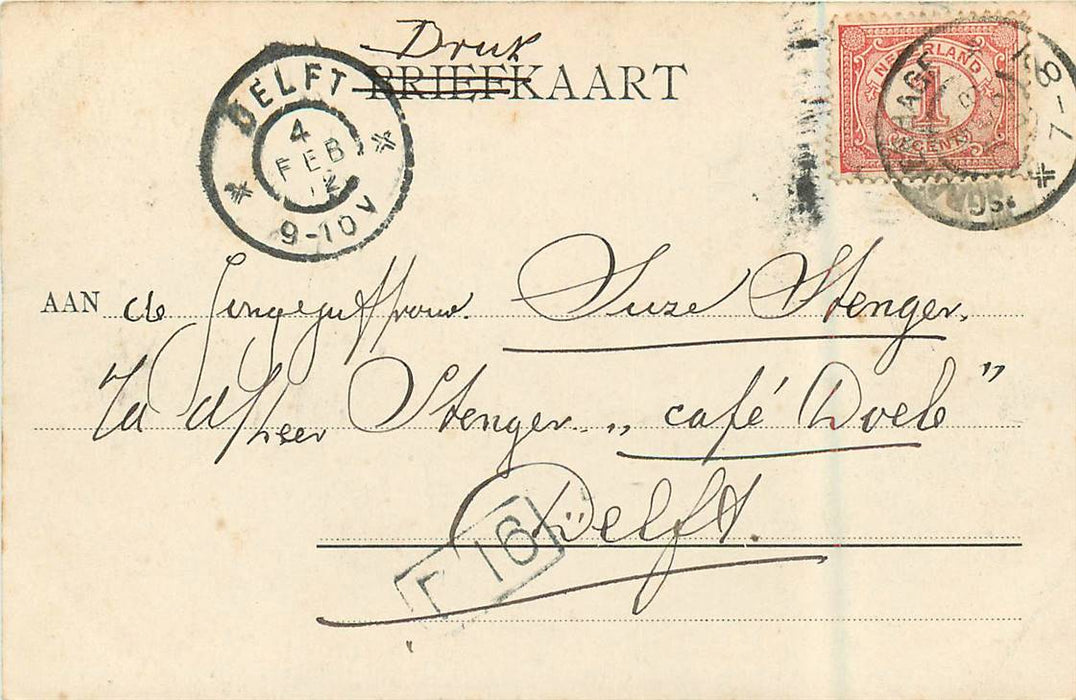 Druk
BRIEFKAART
DELFT
4
FEB
12
9-10V
NEDERLAND
1
CENT
HAGE
7-8
AAN de Jongejuffrouw Suze Stenger.
d/Heer Stenger „café Doele”
Delft.
16